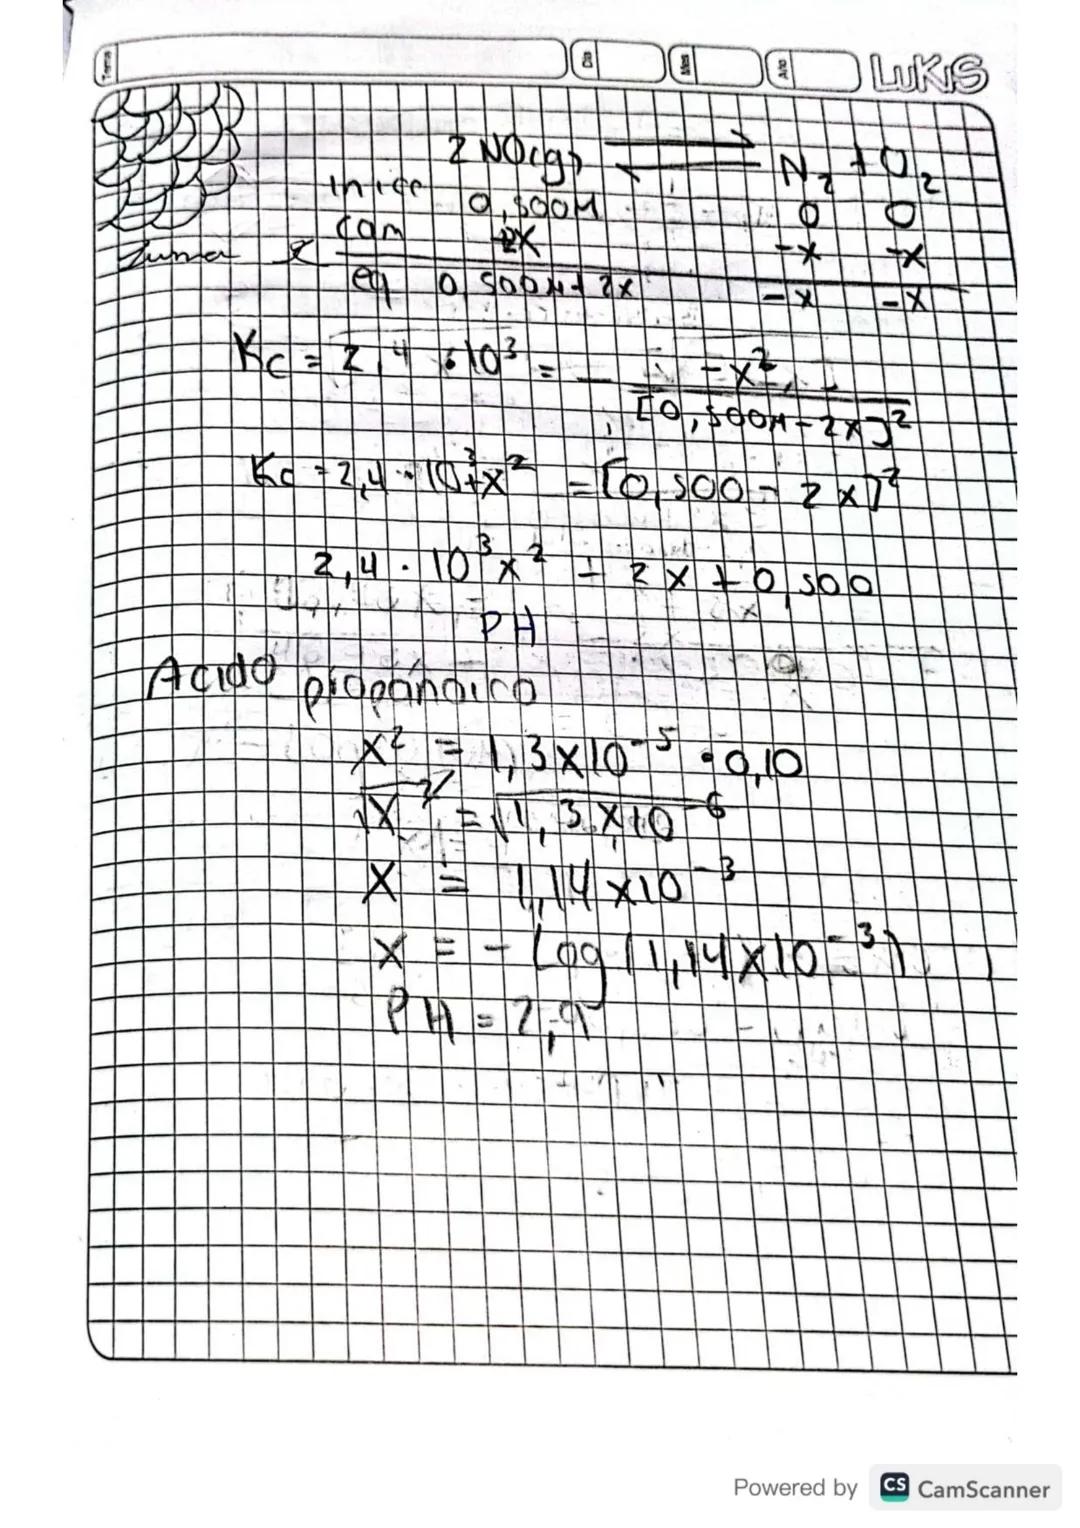 Tema Día Mes Año LUKIS
2 NO(g) ⇌ N₂ + O₂
inicc 0,500M 0 0
cam +2X -x -x
eq 0,500M + 2x -x -x
Kc = 2,4 · 10³ = -x² / [0,500M - 2x]²
Kc = 2,4 · 10³ + x² = [0,500 - 2x]²
2,4 · 10³x² + 2x + 0,500
PH
Acido propánoico
x² = 1,3x10⁻⁵ · 0,10
√x² = √1,3x10⁻⁶
x = 1,14 x10⁻³
x = - Log (1,14x10⁻³)
PH = 2,9
Powered by CS CamScanner